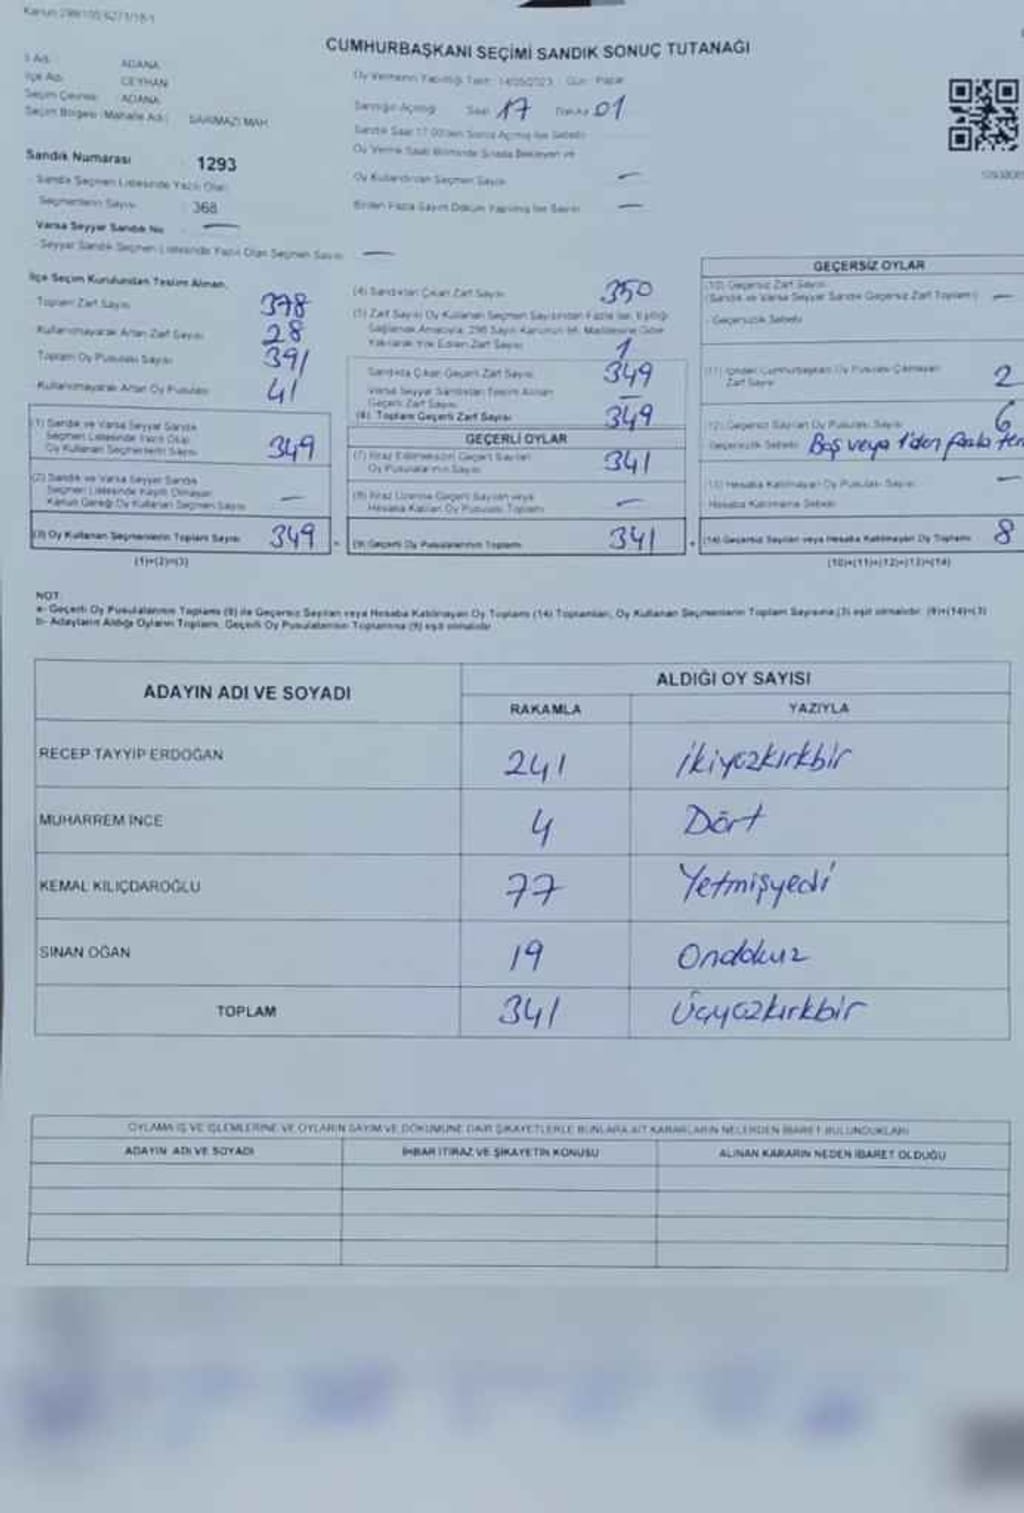 CUMHURBAŞKANI SEÇİMİ SANDIK SONUÇ TUTANAĞI
İl Adı : ADANA
İlçe Adı CEYHAN
Seçim Çevresi ADANA
Seçim Bölgesi - Mahalle Adı : SARIMAZI MAH.
Oy Vermenin Yapıldığı Tarih : 14/05/2023 Gün : Pazar
Sandığın Açıldığı Saat 17 Dakika 01
Sandık Numarası : 1293
Sandık Seçmen Listesinde Yazılı Olan
Seçmenlerin Sayısı : 368
Varsa Seyyar Sandık No —
Seyyar Sandık Seçmen Listesinde Yazılı Olan Seçmen Sayısı —
Oy Kullandırılan Seçmen Sayısı —
Birden Fazla Sayım Döküm Yapılmış İse Sayısı —
İlçe Seçim Kurulundan Teslim Alınan,
Toplam Zarf Sayısı 378
Kullanılmayarak Artan Zarf Sayısı 28
Toplam Oy Pusulası Sayısı 391
Kullanılmayarak Artan Oy Pusulası 41
(1) Sandık ve Varsa Seyyar Sandık
Seçmen Listesinde Yazılı Olup
Oy Kullanan Seçmenlerin Sayısı 349
(2) Sandık ve Varsa Seyyar Sandık
Seçmen Listesinde Kayıtlı Olmayan
Kanun Gereği Oy Kullanan Seçmen Sayısı —
(3) Oy Kullanan Seçmenlerin Toplam Sayısı 349
(1)+(2)=(3)
(4) Sandıktan Çıkan Zarf Sayısı 350
(5) Zarf Sayısı Oy Kullanan Seçmen Sayısından Fazla İse, Eşitliği
Yakılarak Yok Edilen Zarf Sayısı 1
Sandıkta Çıkan Geçerli Zarf Sayısı 349
Varsa Seyyar Sandıktan Teslim Alınan
Geçerli Zarf Sayısı —
(6) Toplam Geçerli Zarf Sayısı 349
GEÇERLİ OYLAR
(7) İtiraz Edilmeksizin Geçerli Sayılan
Oy Pusulalarının Sayısı 341
(8) İtiraz Üzerine Geçerli Sayılan veya
Hesaba Katılan Oy Pusulası Toplamı —
(9) Geçerli Oy Pusulalarının Toplamı 341
GEÇERSİZ OYLAR
(10) Geçersiz Zarf Sayısı
(Sandık ve Varsa Seyyar Sandık Geçersiz Zarf Toplamı) —
Geçersizlik Sebebi
(11) İçinden Cumhurbaşkanı Oy Pusulası Çıkmayan
Zarf Sayısı 2
(12) Geçersiz Sayılan Oy Pusulası Sayısı 6
Geçersizlik Sebebi Boş veya 1'den fazla
(13) Hesaba Katılmayan Oy Pusulası Sayısı —
Hesaba Katılmama Sebebi
(14) Geçersiz Sayılan veya Hesaba Katılmayan Oy Toplamı 8
(10)+(11)+(12)+(13)=(14)
NOT:
a- Geçerli Oy Pusulalarının Toplamı (9) ile Geçersiz Sayılan veya Hesaba Katılmayan Oy Toplamı (14) Toplamları, Oy Kullanan Seçmenlerin Toplam Sayısına (3) eşit olmalıdır. (9)+(14)=(3)
b- Adayların Aldığı Oyların Toplamı, Geçerli Oy Pusulalarının Toplamına (9) eşit olmalıdır
ADAYIN ADI VE SOYADI
ALDIĞI OY SAYISI
RAKAMLA YAZIYLA
RECEP TAYYİP ERDOĞAN 241 İkiyüzkırkbir
MUHARREM İNCE 4 Dört
KEMAL KILIÇDAROĞLU 77 Yetmişyedi
SİNAN OĞAN 19 Ondokuz
TOPLAM 341 Üçyüzkırkbir
OYLAMA İŞ VE İŞLEMLERİNE VE OYLARIN SAYIM VE DÖKÜMÜNE DAİR ŞİKAYETLERLE BUNLARA AİT KARARLARIN NELERDEN İBARET BULUNDUKLARI
ADAYIN ADI VE SOYADI İHBAR İTİRAZ VE ŞİKAYETİN KONUSU ALINAN KARARIN NEDEN İBARET OLDUĞU